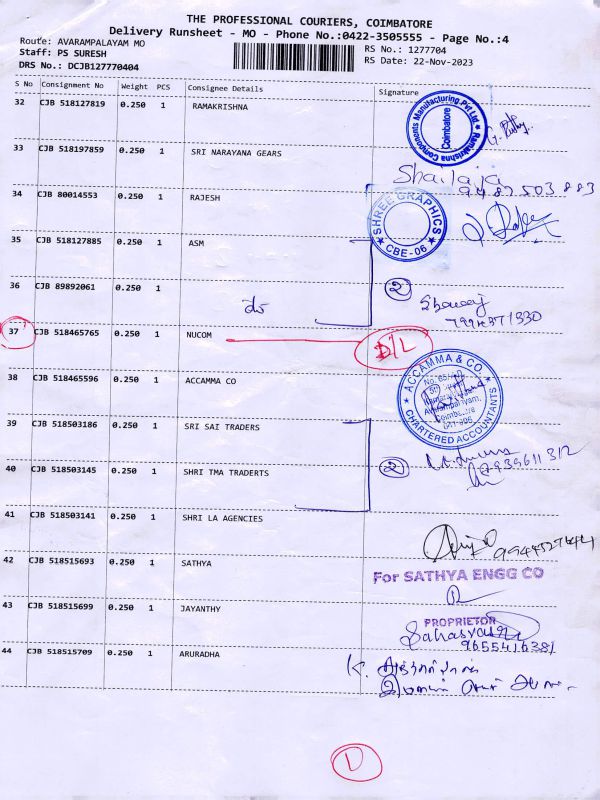 THE PROFESSIONAL COURIERS, COIMBATORE
Delivery Runsheet - MO - Phone No.:0422-3505555 - Page No.:4
Route: AVARAMPALAYAM MO
RS No.: 1277704
Staff: PS SURESH
RS Date: 22-Nov-2023
DRS No.: DCJB127770404
S No Consignment No Weight PCS Consignee Details Signature
32 CJB 518127819 0.250 1 RAMAKRISHNA
Ramakrishna Components Manufacturing Pvt Ltd
Coimbatore
33 CJB 518197859 0.250 1 SRI NARAYANA GEARS
Shailaja
9487503883
34 CJB 80014553 0.250 1 RAJESH
SHREE GRAPHICS
CBE-06
35 CJB 518127885 0.250 1 ASM
36 CJB 89892061 0.250 1
2
37 CJB 518465765 0.250 1 NUCOM
D/L
38 CJB 518465596 0.250 1 ACCAMMA CO
ACCAMMA & CO.
CHARTERED ACCOUNTANTS
39 CJB 518503186 0.250 1 SRI SAI TRADERS
2
40 CJB 518503145 0.250 1 SHRI TMA TRADERTS
41 CJB 518503141 0.250 1 SHRI LA AGENCIES
42 CJB 518515693 0.250 1 SATHYA
For SATHYA ENGG CO
43 CJB 518515699 0.250 1 JAYANTHY
PROPRIETOR
9655416381
44 CJB 518515709 0.250 1 ARURADHA
D